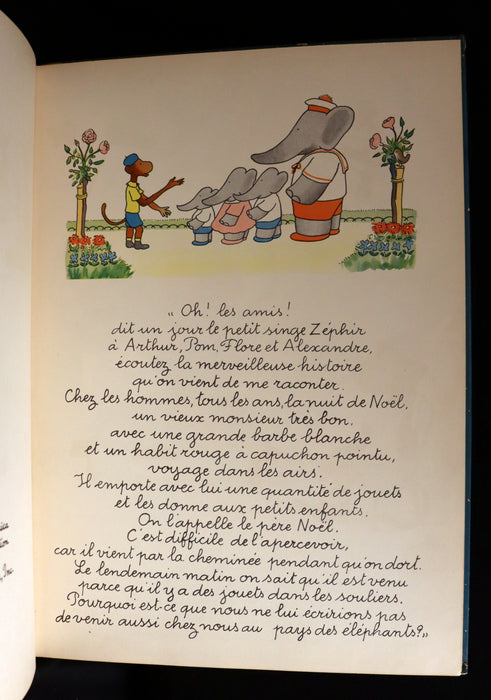 „ Oh! les amis!
dit un jour le petit singe Zéphir
à Arthur, Pom, Flore et Alexandre,
écoutez la merveilleuse histoire
qu'on vient de me raconter.
Chez les hommes, tous les ans, la nuit de Noël,
un vieux monsieur très bon.
avec une grande barbe blanche
et un habit rouge à capuchon pointu,
voyage dans les airs.
Il emporte avec lui une quantité de jouets
et les donne aux petits enfants.
On l'appelle le père Noël.
C'est difficile de l'apercevoir,
car il vient par la cheminée pendant qu'on dort.
Le lendemain matin on sait qu'il est venu
parce qu'il y a des jouets dans les souliers.
Pourquoi est-ce que nous ne lui écririons pas
de venir aussi chez nous au pays des éléphants?„